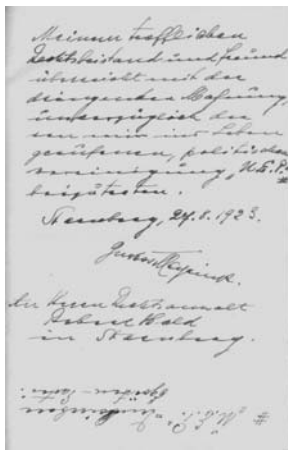 Meinem trefflichen
Rechtsbeistand und Freund
überreicht mit der
dringenden Mahnung,
unverzüglich der
von mir ins Leben
gerufenen, politischen
Vereinigung „U.E.P.“
#
beizutreten.
Starnberg, 24.8.1923.
Gustav Meyrink.
An Herrn Rechtsanwalt
Wald
in Starnberg.
#
Egoisten-Partei.